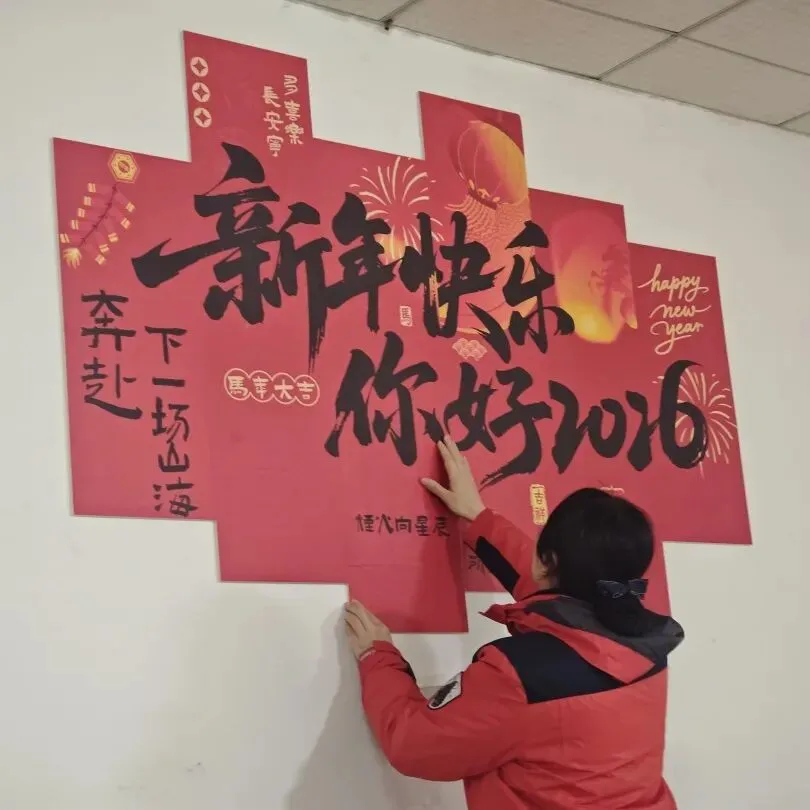 多喜樂
長安寧
新年快乐
happy
new
year
奔赴
下一场山海
馬
馬年大吉
你好2026
吉祥
煙火向星辰
所